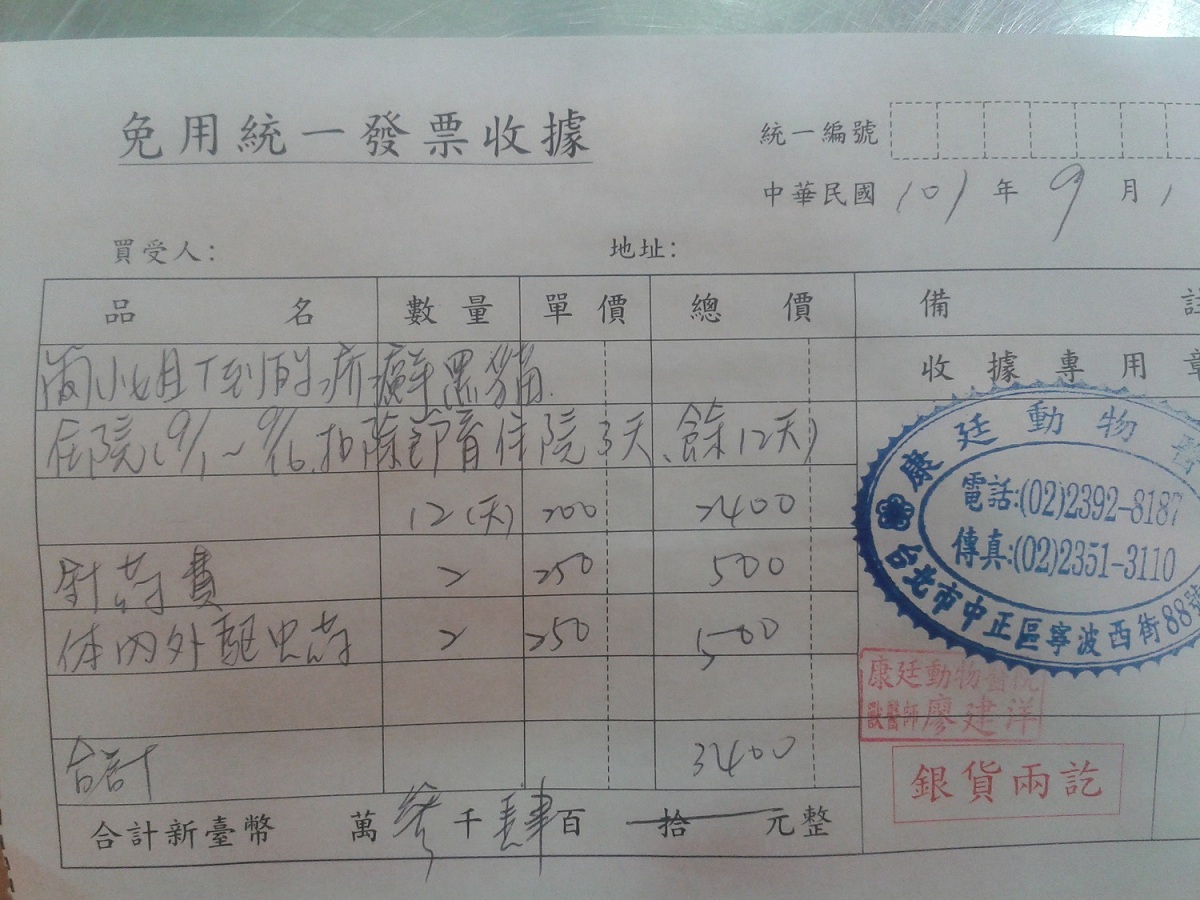 免用統一發票收據
統一編號
中華民國 101 年 9 月 1
買受人:
地址:
品名 數量 單價 總價 備註
小姐 的 癬黑貓.
收據專用章
住院(9/1~9/16.扣除節育住院3天、餘12天)
12(天) 200 2400
針葯費 2 250 500
体內外驅虫葯 2 250 500
合計 3400
合計新臺幣 萬參千肆百拾元整
康廷動物醫
電話:(02)2392-8187
傳真:(02)2351-3110
台北市中正區寧波西街88號
康廷動物醫院
獸醫師廖建洋
銀貨兩訖